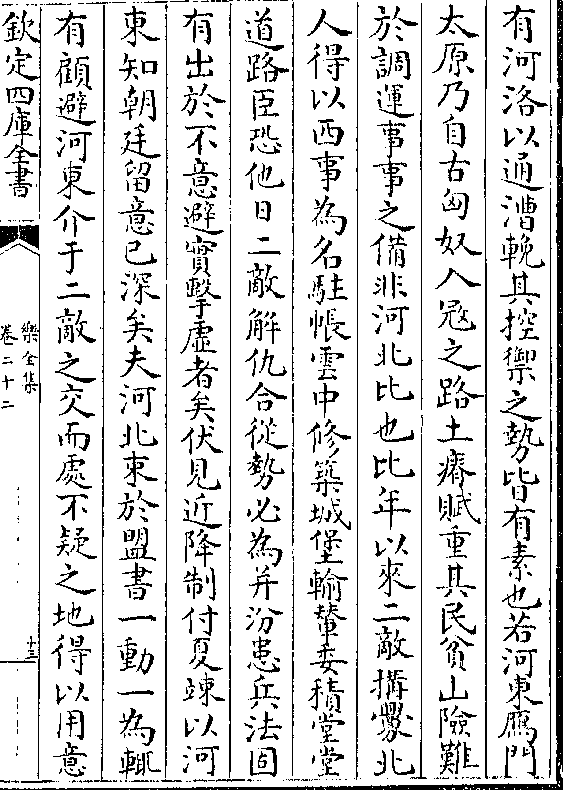 有河洛以通漕輓其控禦之勢皆有素也若河東鴈門
太原乃自古匈奴入冦之路土瘠賦重其民貧山險難
於調運事事之備非河北比也比年以來二敵搆釁北
人得以西事為名駐帳雲中修築城堡輸輦委積堂堂
道路臣恐他日二敵解仇合從勢必為并汾患兵法固
有出於不意避實擊虛者矣伏見近降制付夏竦以河
東知朝廷留意已深矣夫河北束於盟書一動一為輒
有顧避河東介于二敵之交而處不疑之地得以用意
欽定四庫全書
樂全集
卷二十二
十三